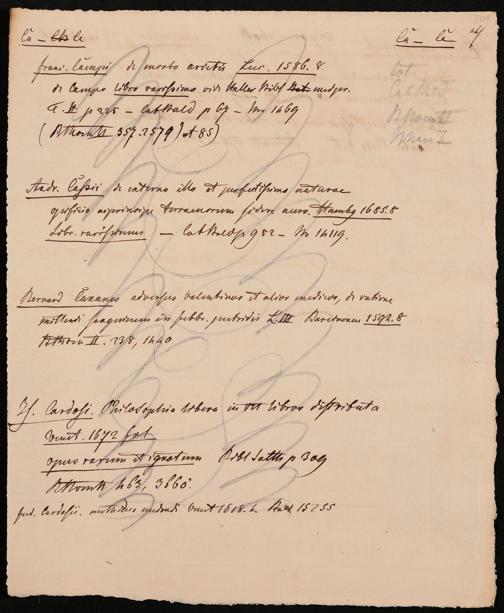 Ca – le
Ca – Ce
franc. Campii de morbo arietis Luc. 1586. 8
de Campo libro rarissimo vid. Haller Bibl medic.
T II p 225 – Cat Bald p 67 – N 1469
(BThom II 357. 2579) A 85)
Andr. Cassii de extremo illo et perfectissimo naturae
opificio ac principe terraenorum sidere auro. Hambg 1685. 8
Libr. rarissimus – Cat Bald p 982 – N 14119.
Bernard Caxanes adversus Valentinos et alios medicos, de ratione
mittendi sanguinem in febr. putridis L. III Barcinonae 1592. 8
BThom II. 238, 1440
Is. Cardosi. Philosophia libera in VII libros distributa
Venet. 1672 fol
opus rarum et ignotum Bibl Salth p 309
BThom II 463, 3860.
Cardosi. methodus medendi Venet 1618. 4. Bald 15255